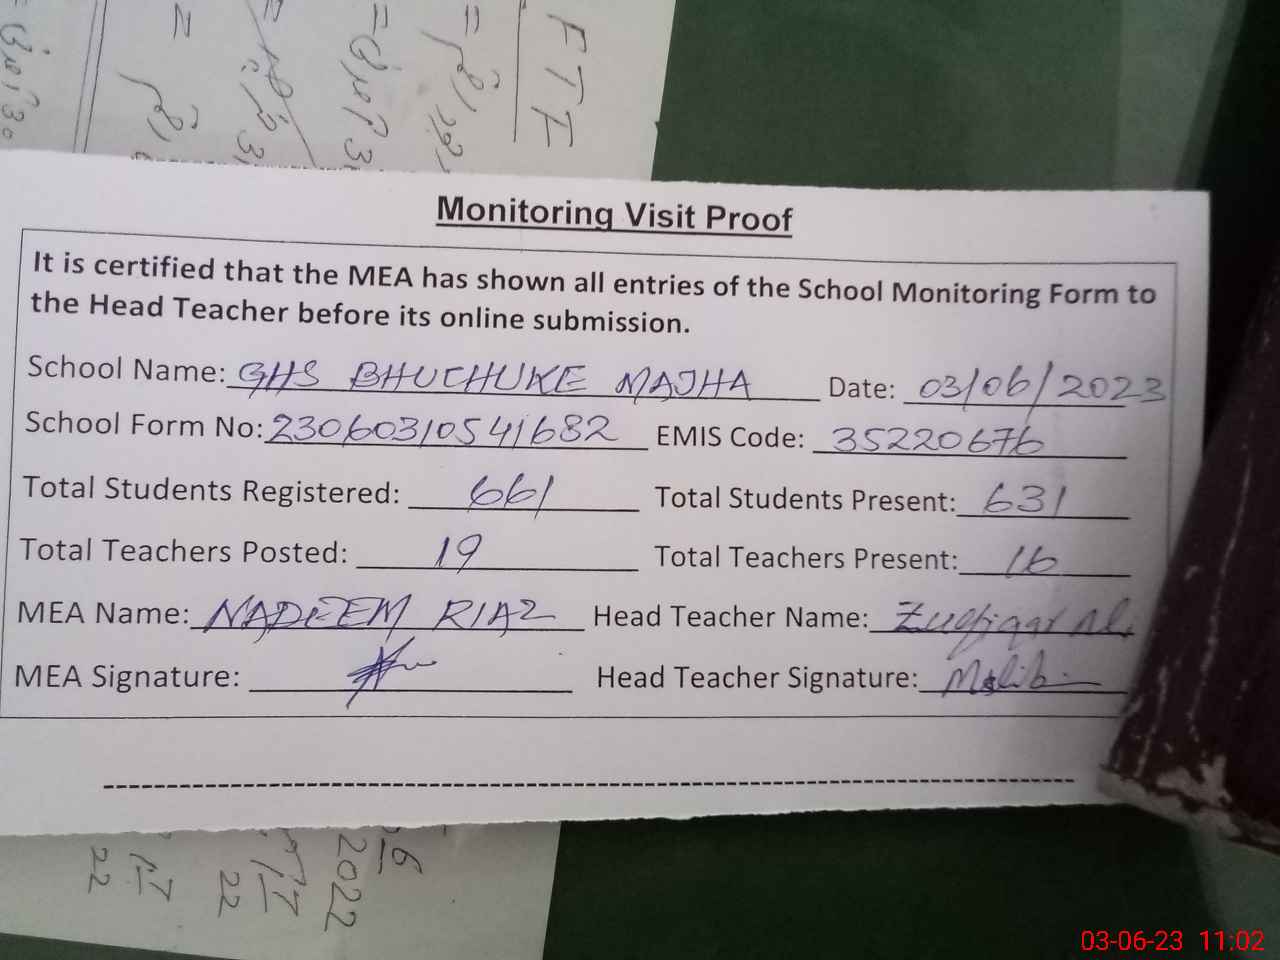 FTF
Monitoring Visit Proof
It is certified that the MEA has shown all entries of the School Monitoring Form to
the Head Teacher before its online submission.
School Name: GHS BHUCHUKE MAJHA Date: 03/06/2023
School Form No: 23060310541682 EMIS Code: 35220676
Total Students Registered: 661 Total Students Present: 631
Total Teachers Posted: 19 Total Teachers Present: 16
MEA Name: NADEEM RIAZ Head Teacher Name: Zulfiqar Ali
MEA Signature: Head Teacher Signature:
6
2022
17
22
17
22
03-06-23 11:02